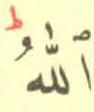 ٱللَّهُ ؕ